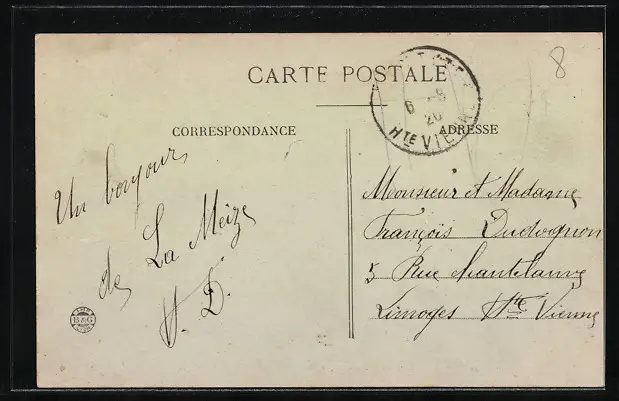 CARTE POSTALE
8
6 -8
20
HTE VIENNE
CORRESPONDANCE
ADRESSE
Un bonjour
de La Meize
H. D.
B&G
Monsieur et Madame
François Dudognon
5 Rue Chantelauve
Limoges Hte Vienne